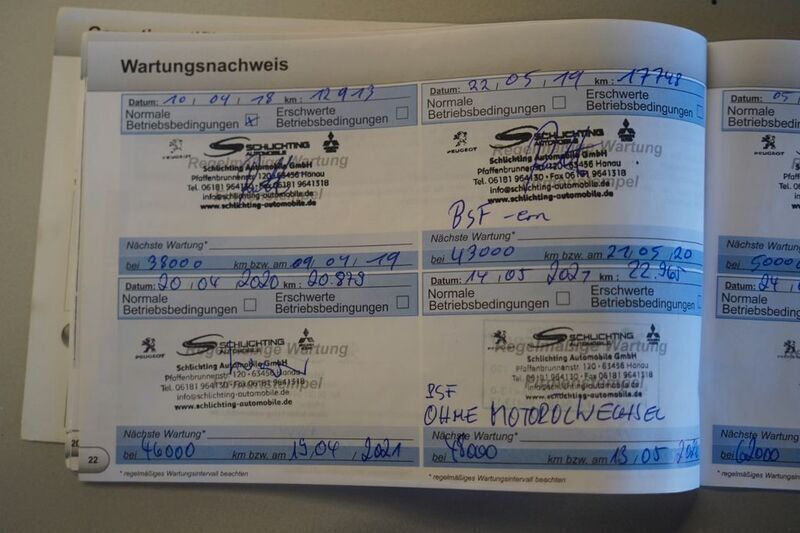 Wartungsnachweis
Datum: 10, 04, 18 km: 12913
Normale Betriebsbedingungen x
Erschwerte Betriebsbedingungen
PEUGEOT
SCHLICHTING
AUTOMOBILE
MITSUBISHI
Regelmäßige Wartung
Schlichting Automobile GmbH
Pfaffenbrunnenstr. 120 · 63456 Hanau
Tel. 06181 964130 · Fax 06181 9641318
info@schlichting-automobile.de
www.schlichting-automobile.de
Nächste Wartung*
bei 38000 km bzw. am 09, 04, 19
Datum: 22, 05, 19 km: 17748
Normale Betriebsbedingungen
Erschwerte Betriebsbedingungen
PEUGEOT
SCHLICHTING
AUTOMOBILE
Regelmäßige Wartung
Schlichting Automobile GmbH
Pfaffenbrunnenstr. 120 · 63456 Hanau
Tel. 06181 964130 · Fax 06181 9641318
info@schlichting-automobile.de
www.schlichting-automobile.de
BSF -ern
Nächste Wartung*
bei 43000 km bzw. am 21, 05, 20
Datum: 20, 04, 2020 km: 20.879
Normale Betriebsbedingungen
Erschwerte Betriebsbedingungen
PEUGEOT
SCHLICHTING
AUTOMOBILE
Regelmäßige Wartung
Schlichting Automobile GmbH
Pfaffenbrunnenstr. 120 · 63456 Hanau
Tel. 06181 964130 · Fax 06181 9641318
info@schlichting-automobile.de
www.schlichting-automobile.de
Nächste Wartung*
bei 46000 km bzw. am 19, 04, 2021
Datum: 14, 05, 2021 km: 22.965
Normale Betriebsbedingungen
Erschwerte Betriebsbedingungen
SCHLICHTING
AUTOMOBILE
Regelmäßige Wartung
Schlichting Automobile GmbH
Pfaffenbrunnenstr. 120 · 63456 Hanau
Tel. 06181 964130 · Fax 06181 9641318
info@schlichting-automobile.de
www.schlichting-automobile.de
BSF
OHNE MOTORÖLWECHSEL
Nächste Wartung*
bei 48000 km bzw. am 13, 05
* regelmäßiges Wartungsintervall beachten
* regelmäßiges Wartungsintervall beachten
22
Datum: 05
Normale
Betriebsbe
PEUGEOT
Nächste Wart
bei 50000
Datum: 24
Normale
Betriebsbe
Nächste Wart
bei 62000
* regelmäßiges